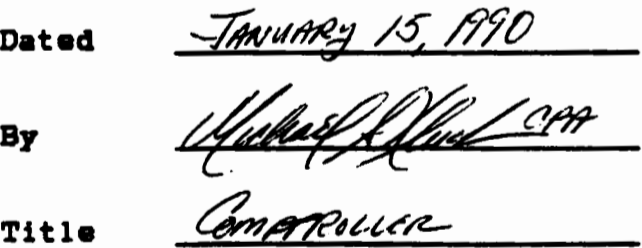 Dated January 15, 1990
By Michael CPA
Title Comptroller